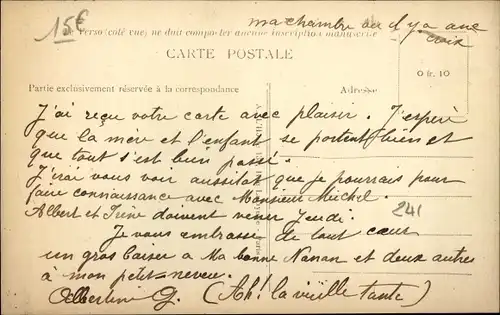 15€
ma chambre où il y a une
croix
Verso (côté vue) ne doit comporter aucune inscription manuscrite
CARTE POSTALE
0 fr. 10
Partie exclusivement réservée à la correspondance
Adresse
J'ai reçu votre carte avec plaisir. J'espère
que la mère et l'enfant se portent bien et
que tout s'est bien passé.
J'irai vous voir aussitôt que je pourrais pour
faire connaissance avec Monsieur Michel.
241
Albert et Irène doivent venir Jeudi.
Je vous embrasse de tout cœur
un gros baiser a Ma bonne Nanan et deux autres
a mon petit-neveu.
Albertine G. (Ah! la vieille tante)